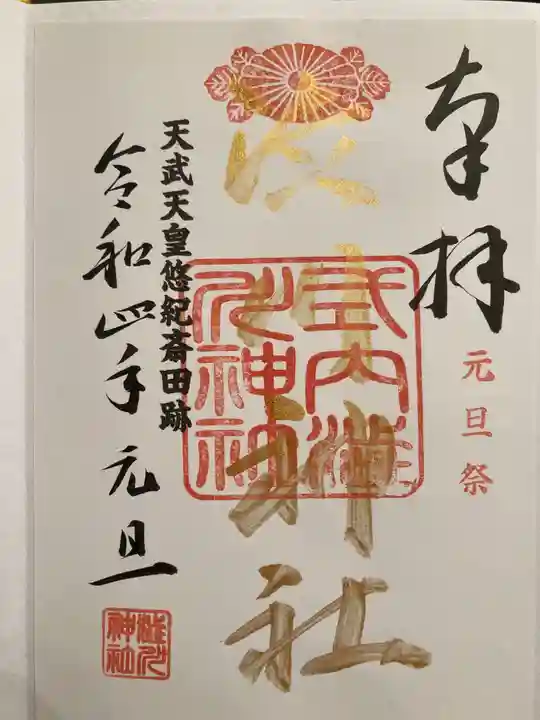 奉拝
元旦祭
渋川神社
式内澁
川神社
天武天皇悠紀斎田跡
令和四年元旦
澁川
神社